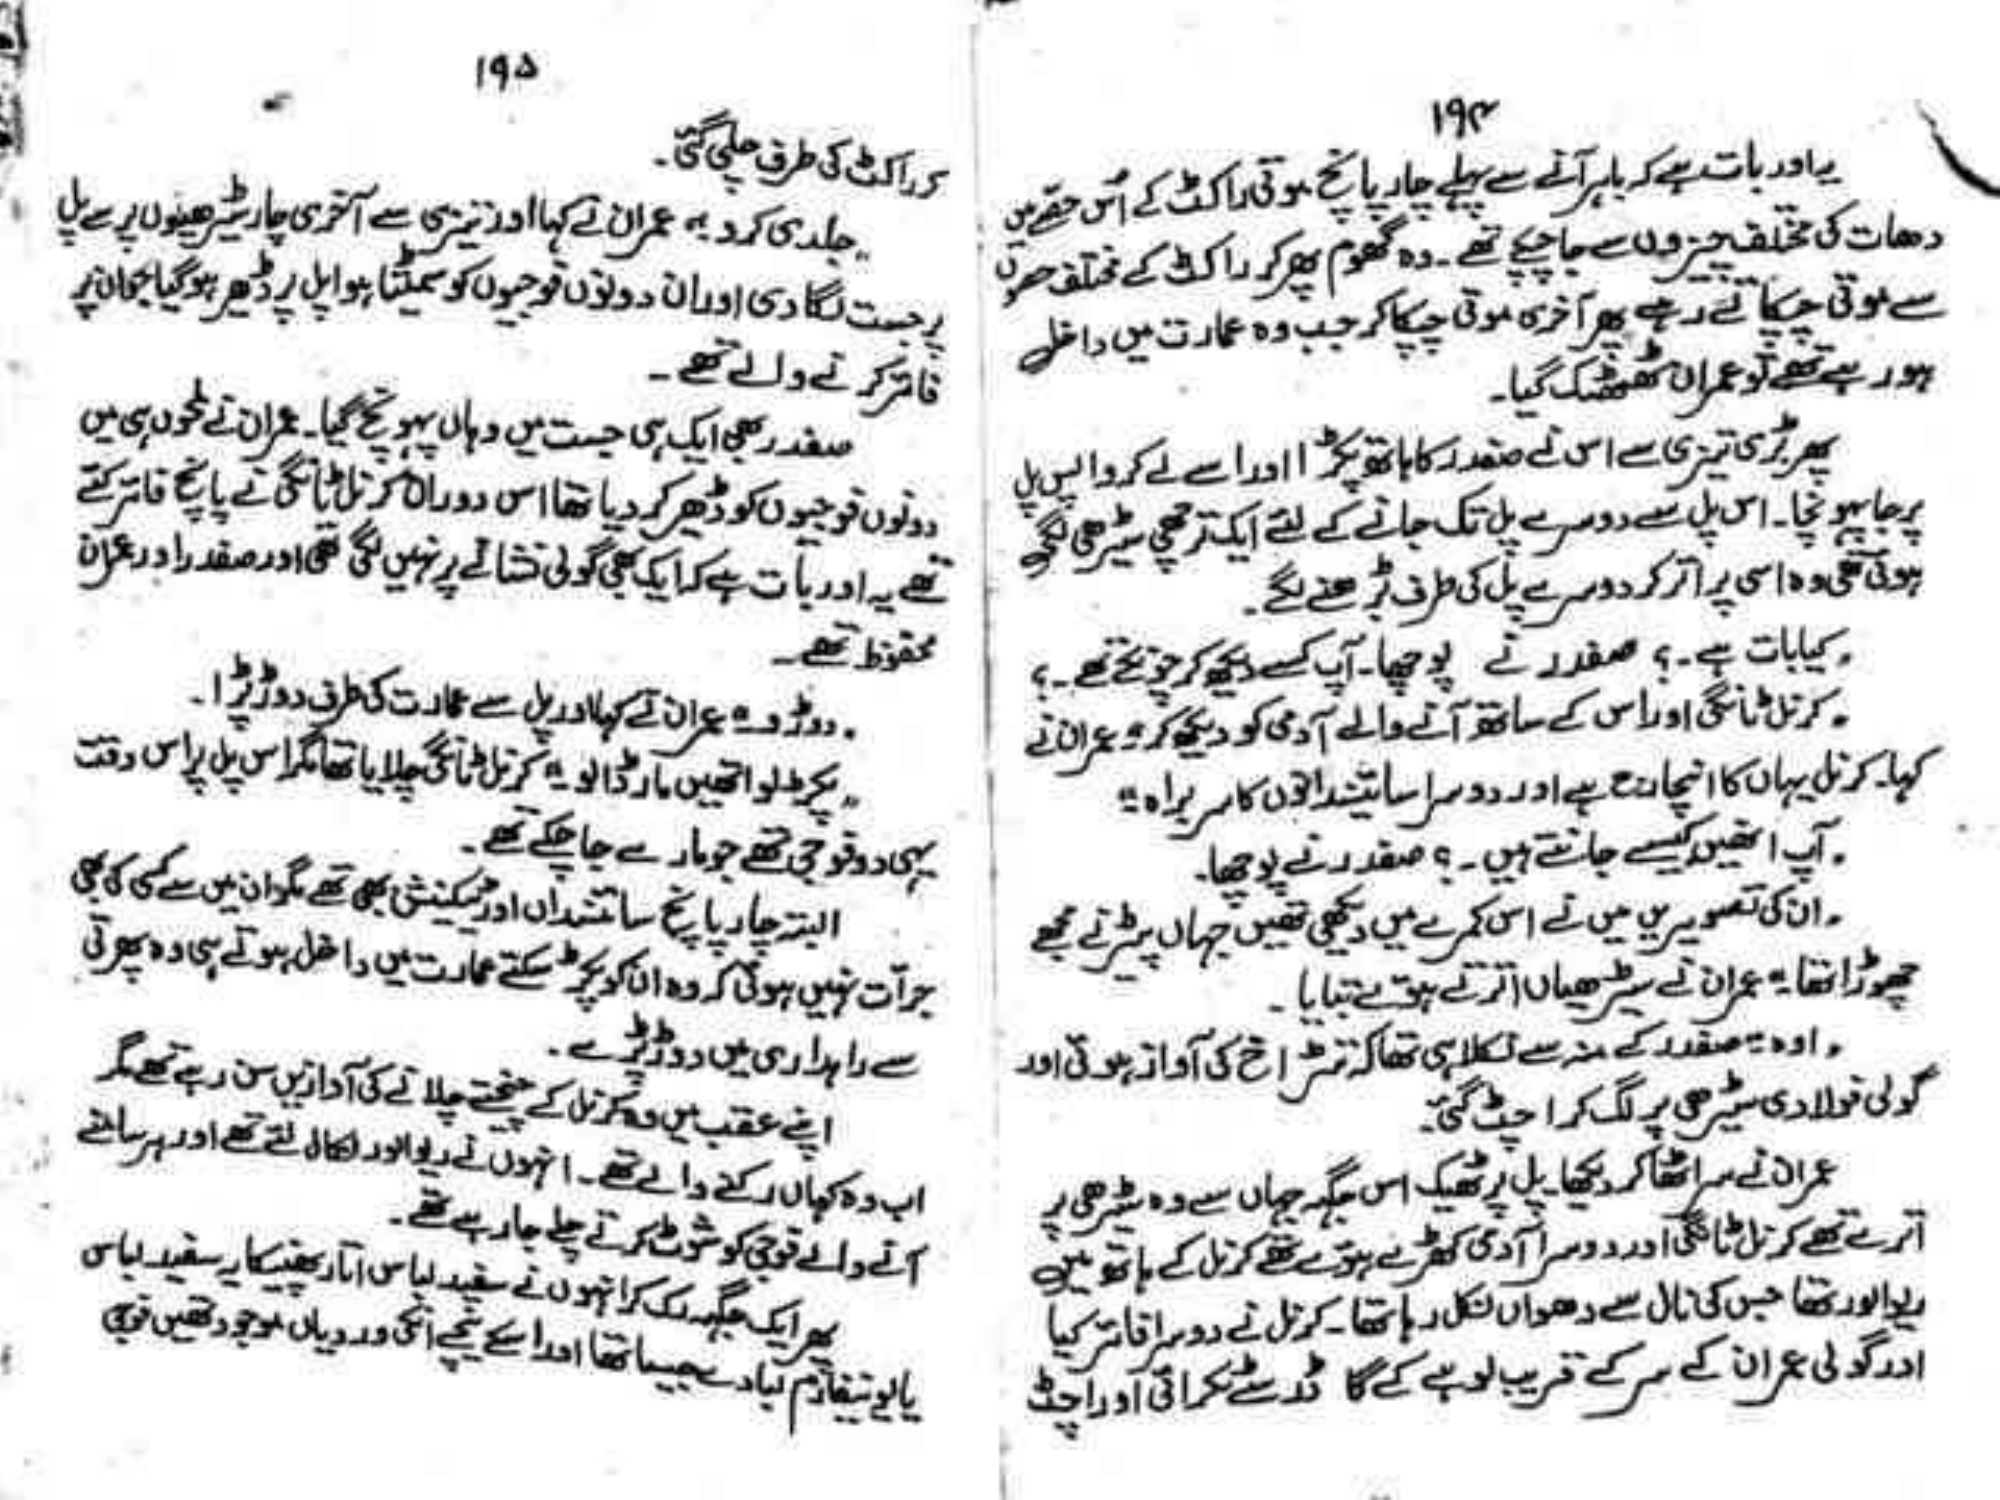 ۱۹۴
یہ اور بات ہے کہ باہر آنے سے پہلے چار پانچ موتی راکٹ کے اُس حصے میں
دھات کی مختلف چیزوں سے جا چپکے تھے ۔ وہ گھوم پھر کر راکٹ کے مختلف حصوں
سے موتی چپکاتے رہے پھر آخری موتی چپکا کر جب وہ عمارت میں داخل
ہو رہے تھے تو عمران ٹھٹھک گیا ۔
پھر بڑی تیزی سے اس نے صفدر کا ہاتھ پکڑا اور اسے لے کر واپس پل
پر جا پہونچا ۔ اس پل سے دوسرے پل تک جانے کے لئے ایک ترچھی سیڑھی لگی
ہوئی تھی وہ اسی پر اتر کر دوسرے پل کی طرف بڑھنے لگے ۔
" کیا بات ہے ۔ ؟ صفدر نے پوچھا ۔ آپ کسے دیکھ کر چونکے تھے ۔ ؟
" کرنل ٹانگی اور اس کے ساتھ آنے والے آدمی کو دیکھ کر " عمران نے
کہا ۔ کرنل یہاں کا انچارج ہے اور دوسرا سائنسدانوں کا سربراہ "
" آپ انھیں کیسے جانتے ہیں ۔ ؟ صفدر نے پوچھا ۔
" ان کی تصویریں میں نے اس کمرے میں دیکھی تھیں جہاں پیٹر نے مجھے
چھوڑا تھا " عمران نے سیڑھیاں اترتے ہوئے بتایا ۔
" اوہ " صفدر کے منہ سے نکلا ہی تھا کہ تڑاخ کی آواز ہوئی اور
گولی فولادی سیڑھی پر لگ کر اچٹ گئی ۔
عمران نے سر اٹھا کر دیکھا ۔ پل پر ٹھیک اس جگہ جہاں سے وہ سیڑھی پر
اترے تھے کرنل ٹانگی اور دوسرا آدمی کھڑے ہوئے تھے کرنل کے ہاتھ میں
ریوالور تھا جس کی نال سے دھواں نکل رہا تھا ۔ کرنل نے دوسرا فائر کیا
اور گولی عمران کے سر کے قریب لوہے کے گاڈر سے ٹکرائی اور اچٹ
۱۹۵
کر راکٹ کی طرف چلی گئی ۔
" جلدی کرو " عمران نے کہا اور تیزی سے آخری چار سیڑھیوں پر سے پل
پر جست لگا دی اور ان دونوں فوجیوں کو سمیٹتا ہوا پل پر ڈھیر ہو گیا جو ان پر
فائر کرنے والے تھے ۔
صفدر بھی ایک ہی جست میں وہاں پہونچ گیا ۔ عمران نے لمحوں ہی میں
دونوں فوجیوں کو ڈھیر کر دیا تھا اس دوران کرنل ٹانگی نے پانچ فائر کئے
تھے یہ اور بات ہے کہ ایک بھی گولی نشانے پر نہیں لگی تھی اور صفدر اور عمران
محفوظ تھے ۔
" دوڑو " عمران نے کہا اور پل سے عمارت کی طرف دوڑ پڑا ۔
" پکڑ لو انھیں مار ڈالو " کرنل ٹانگی چلایا تھا مگر اس پل پر اس وقت
یہی دو فوجی تھے جو مارے جا چکے تھے ۔
البتہ چار پانچ سائنسداں اور ٹیکنیشن بھی تھے مگر ان میں سے کسی کی بھی
جرأت نہیں ہوئی کہ وہ ان کو پکڑ سکتے عمارت میں داخل ہوتے ہی وہ پھرتی
سے راہداری میں دوڑ پڑے ۔
اپنے عقب میں وہ کرنل کے چیخنے چلانے کی آوازیں سن رہے تھے مگر
اب وہ کہاں رکنے والے تھے ۔ انہوں نے ریوالور نکال لئے تھے اور ہر سامنے
آنے والے فوجی کو شوٹ کرتے چلے جا رہے تھے ۔
پھر ایک جگہ رک کر انہوں نے سفید لباس اتار پھینکا یہ سفید لباس
یا یونیفارم لبادے جیسا تھا اور اسکے نیچے انکی وردیاں موجود تھیں فوجی